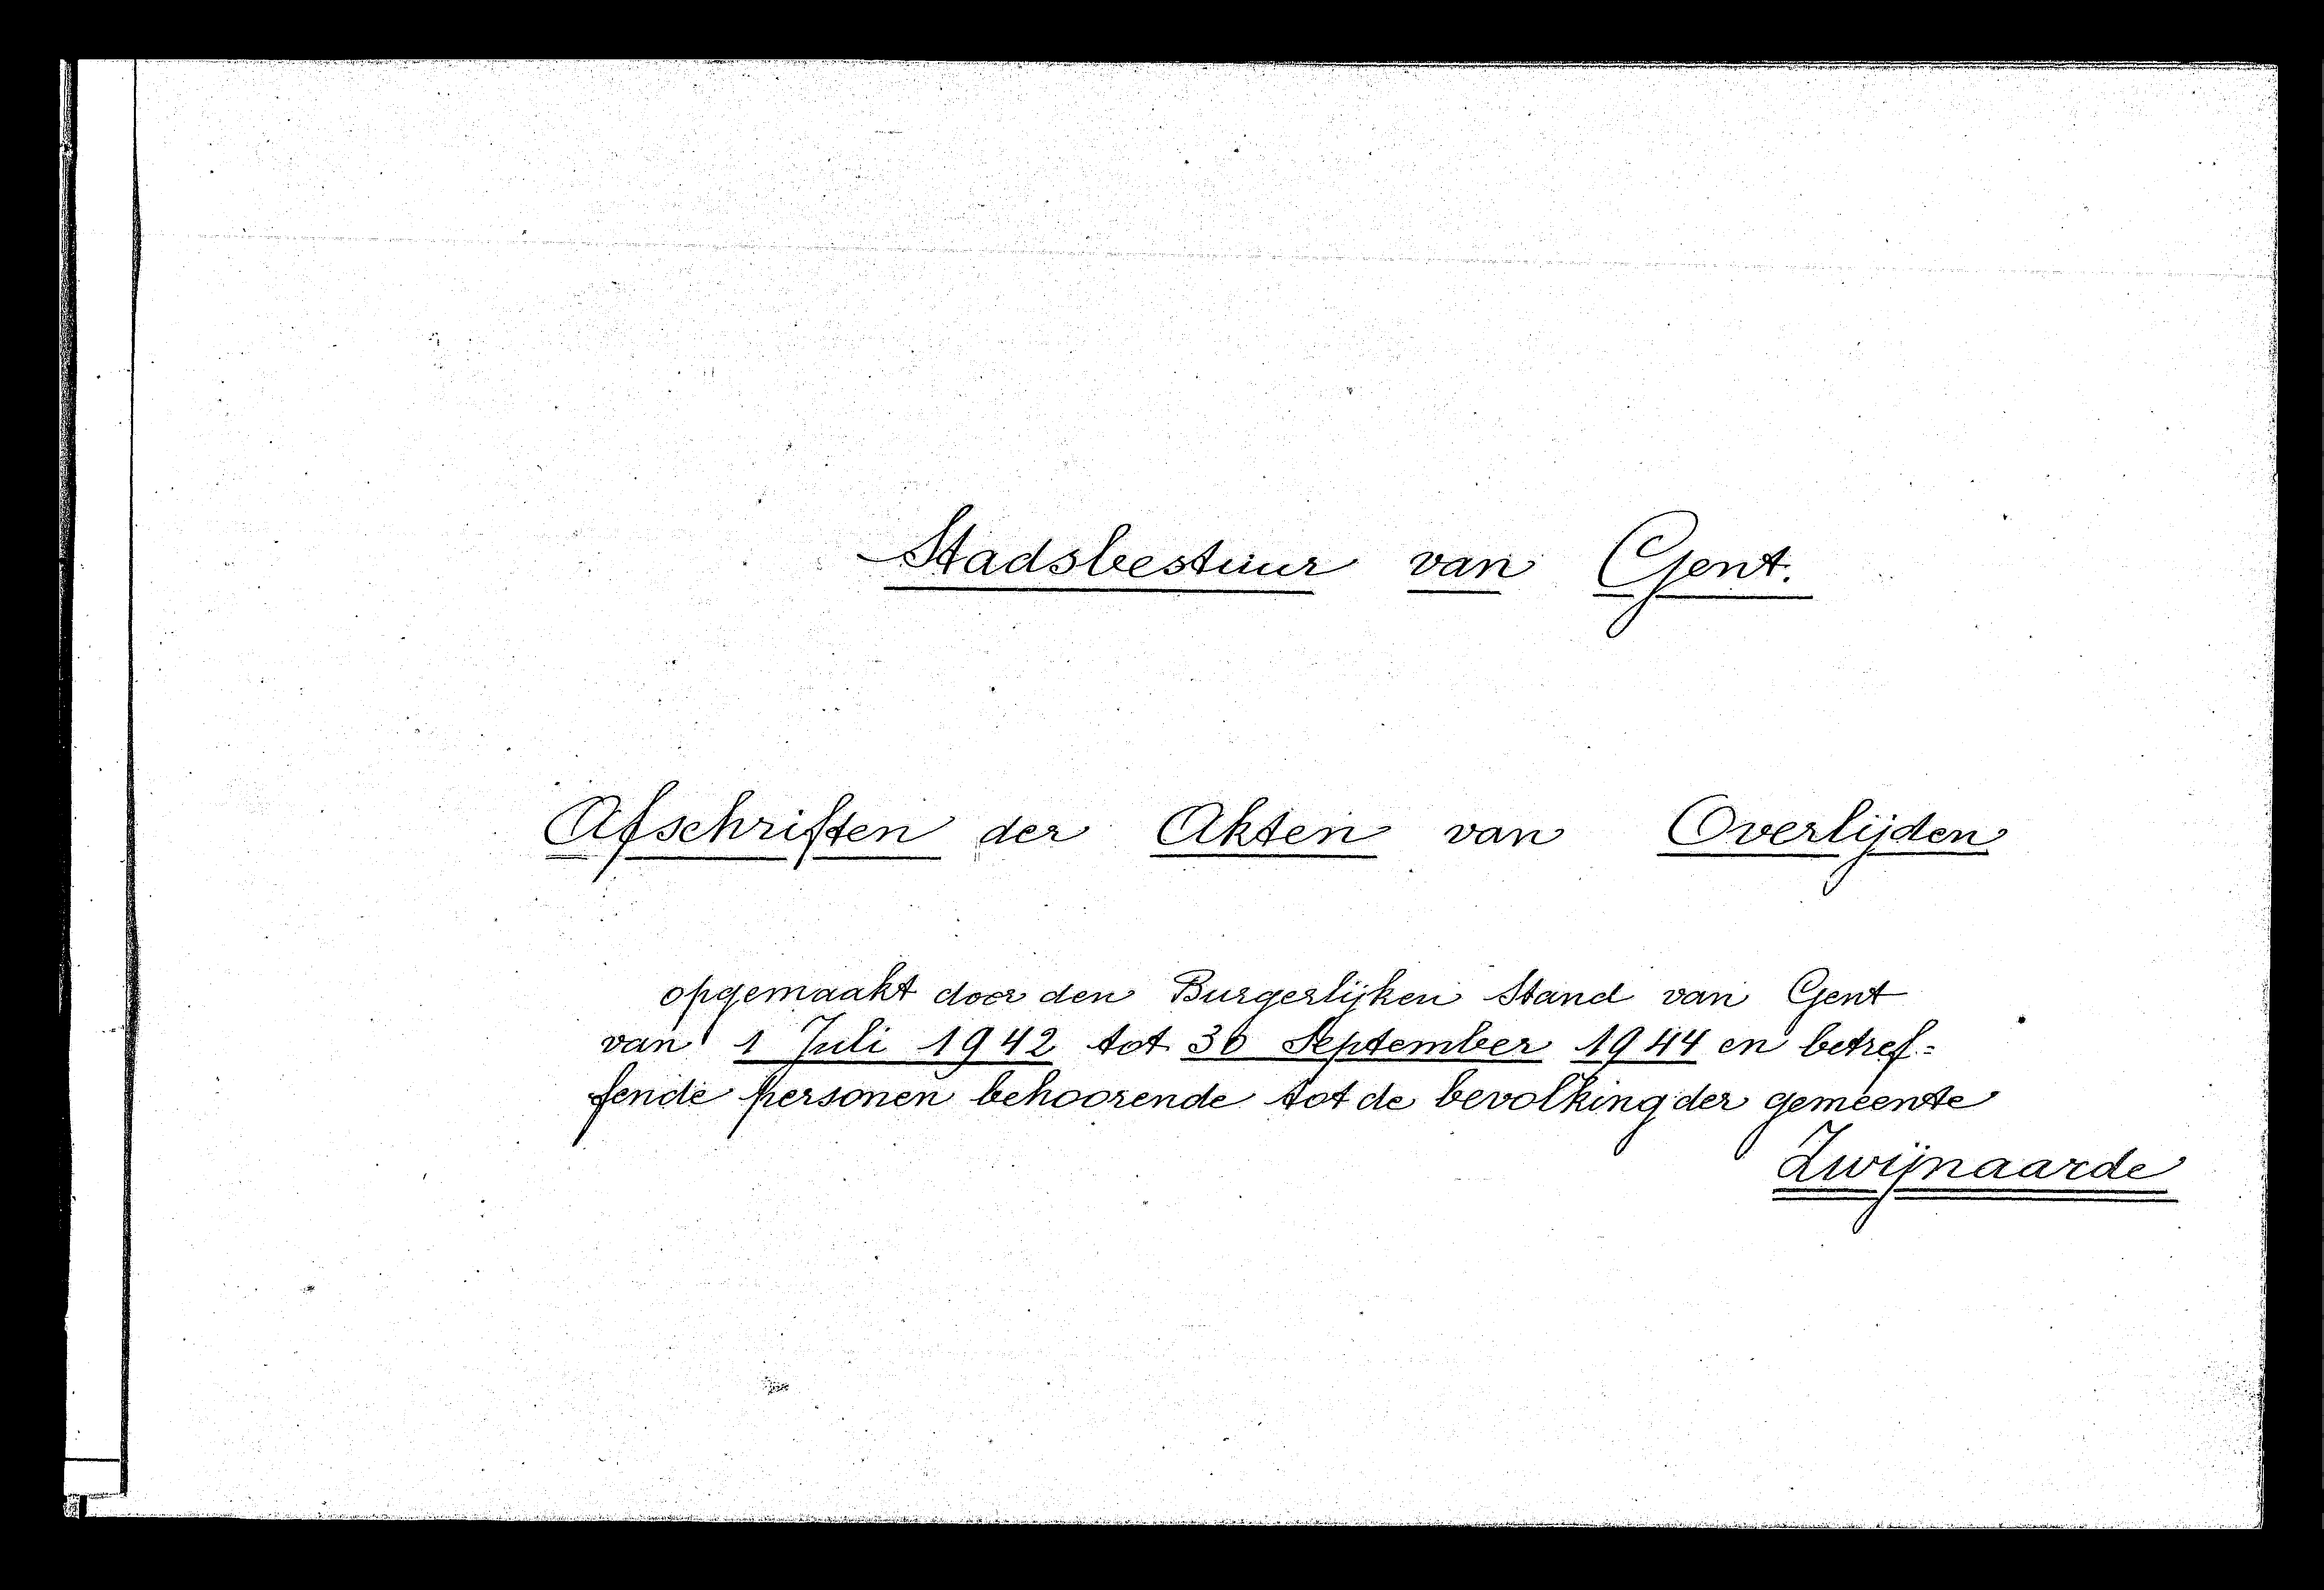 Stadsbestuur van Gent.
Afschriften der Akten van Overlijden
opgemaakt door den Burgerlijken Stand van Gent
van 1 Juli 1942 tot 30 September 1944 en betref=
fende personen behoorende tot de bevolking der gemeente
Zwijnaarde